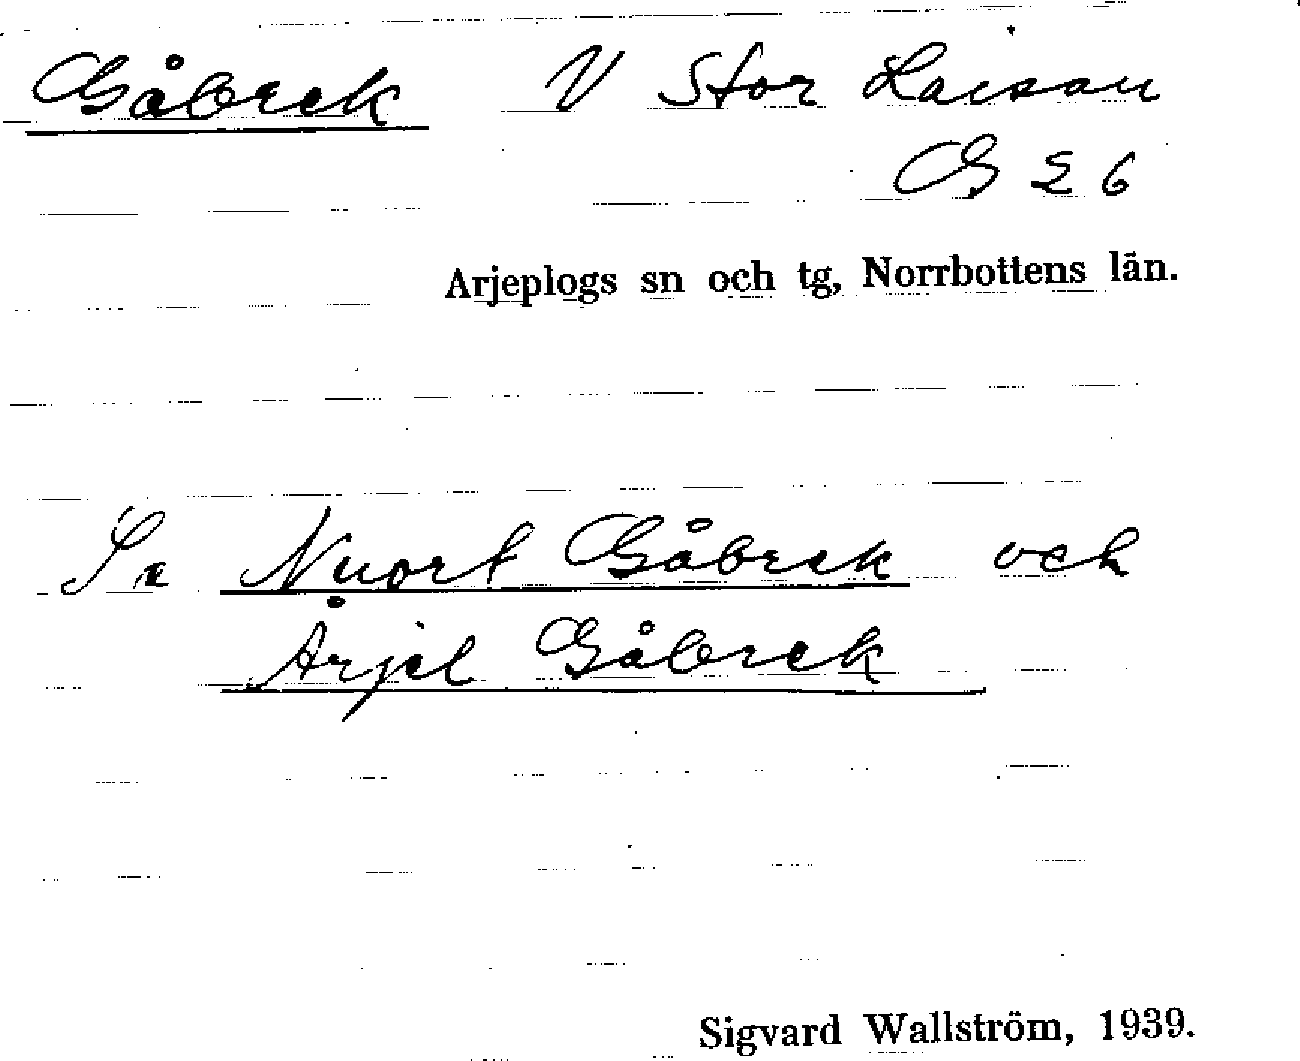 Gåbrek V Stor Laisan
G 26
Arjeplogs sn och tg, Norrbottens län.
Se Nuort Gåbrek och
Årjel Gåbrek
Sigvard Wallström, 1939.